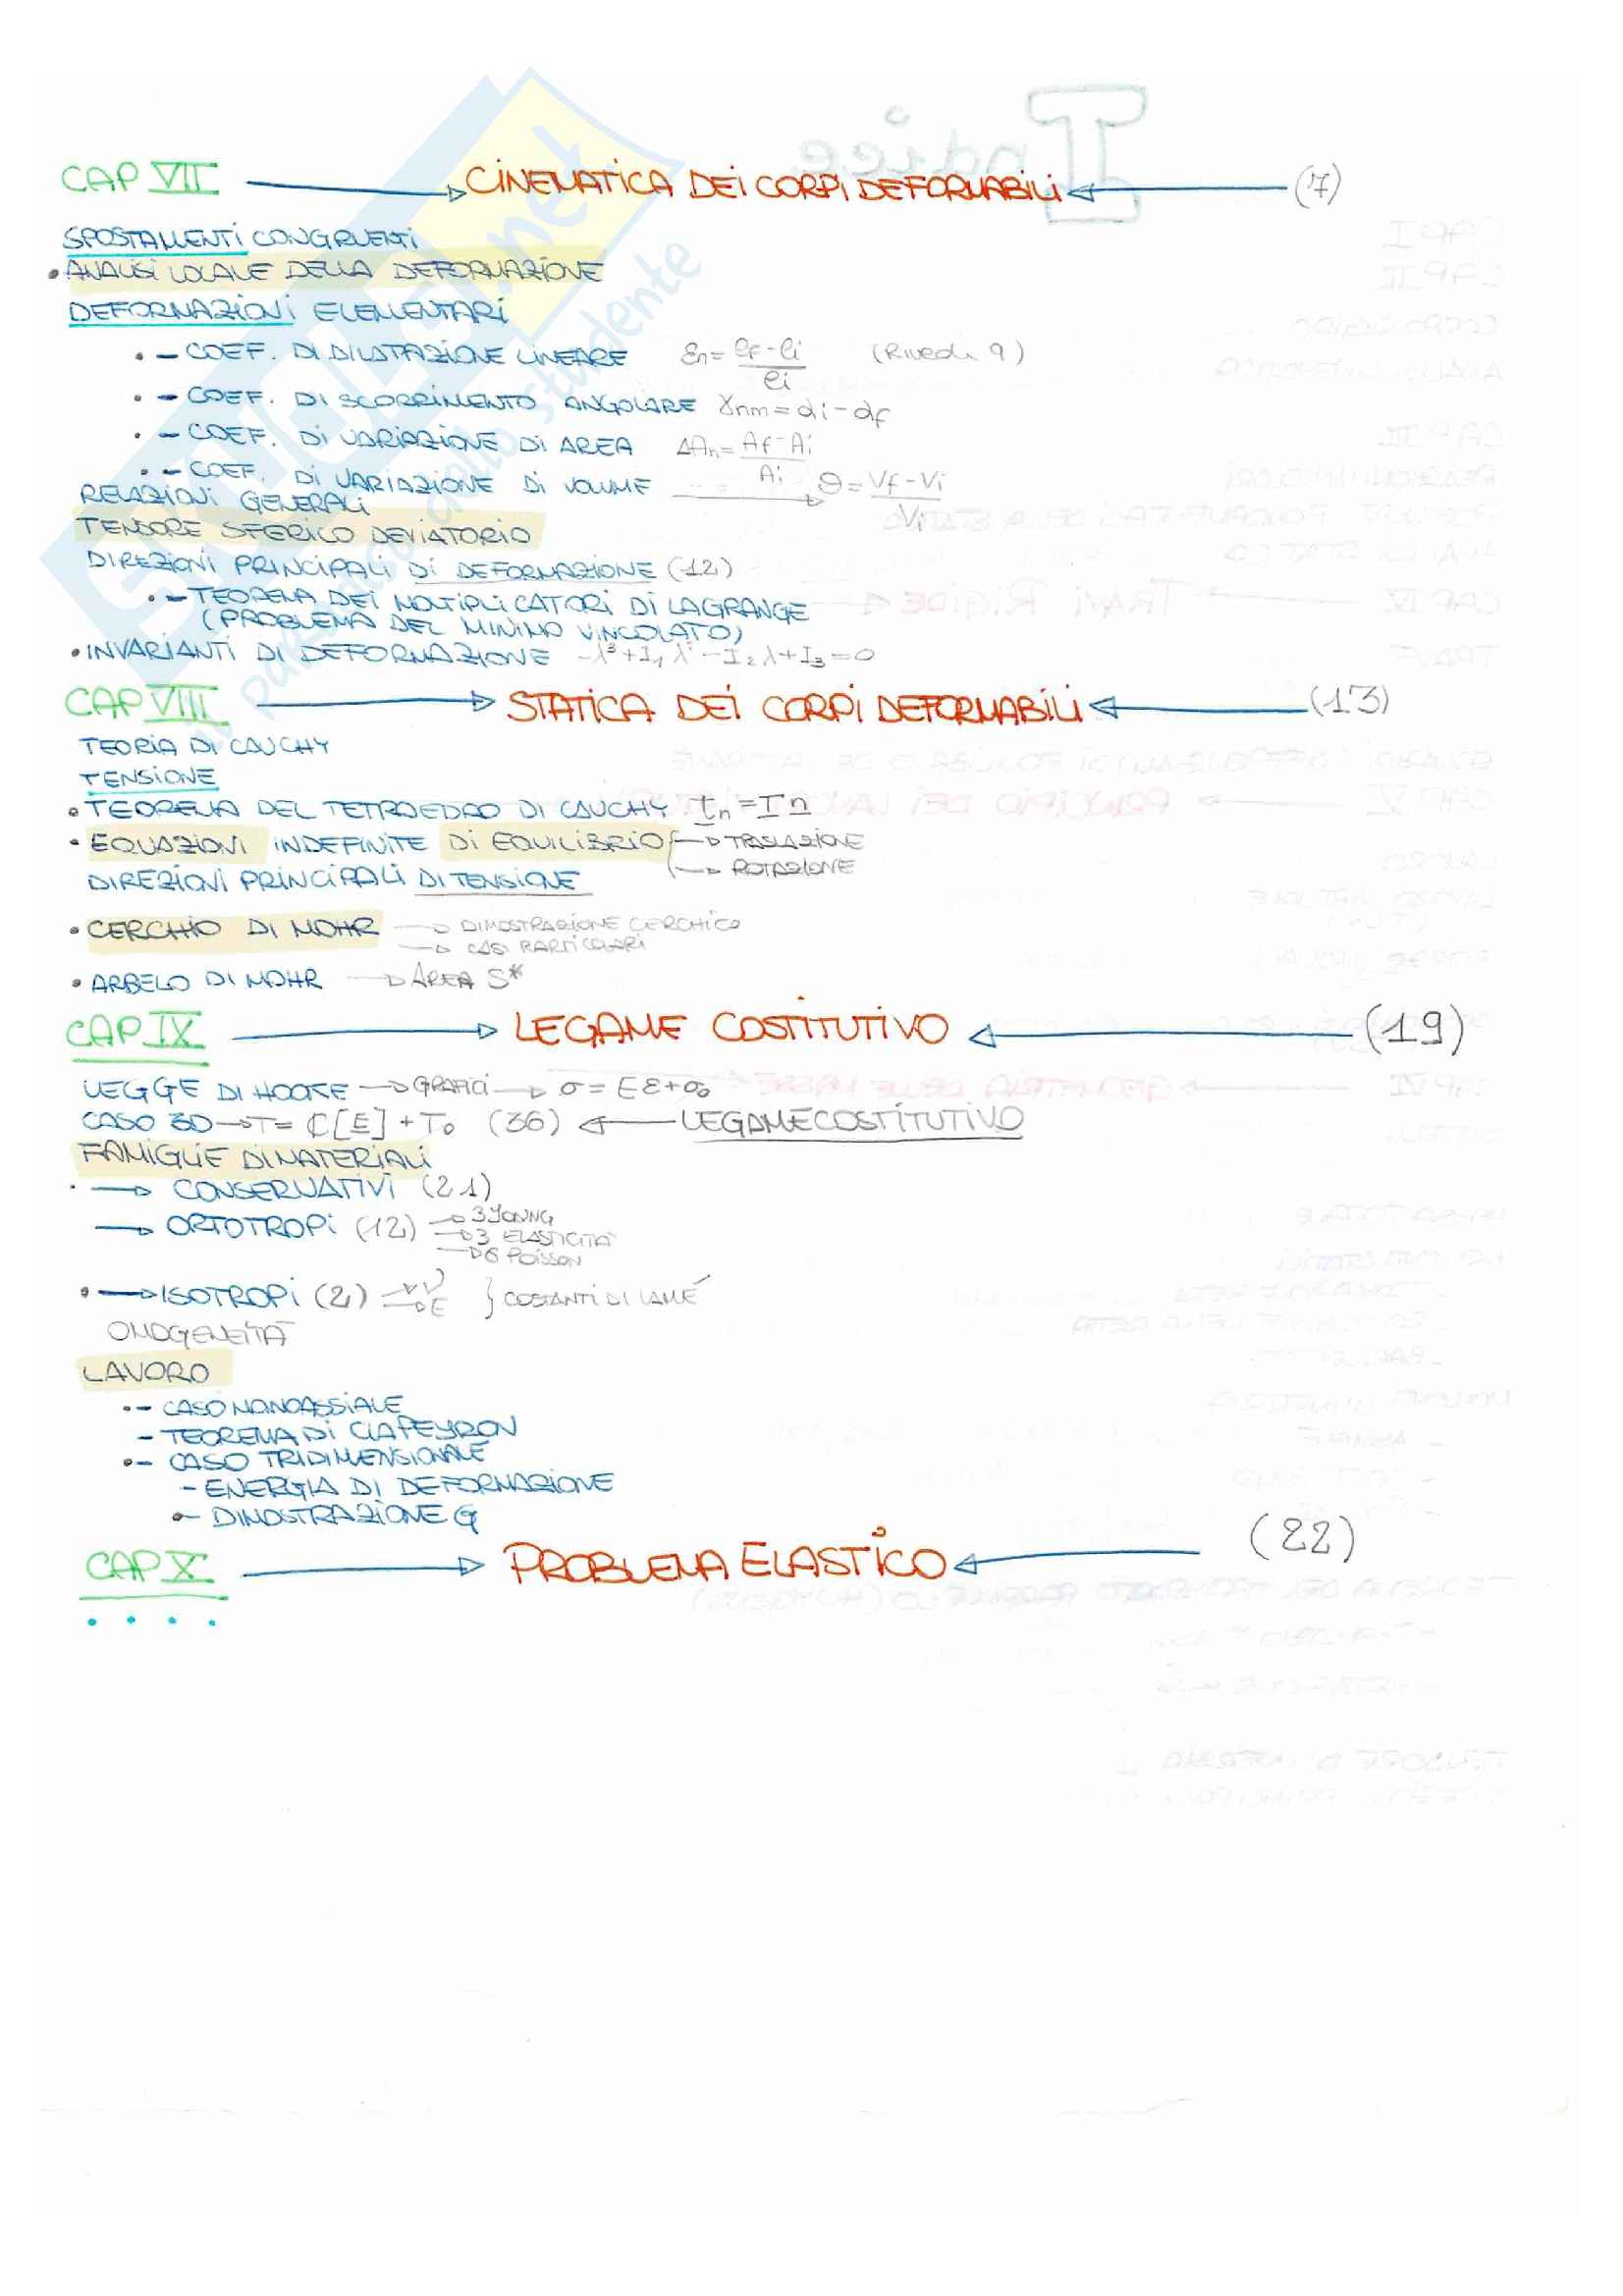 CAP VII → CINEMATICA DEI CORPI DEFORMABILI ← (7)
SPOSTAMENTI CONGRUENTI
• ANALISI LOCALE DELLA DEFORMAZIONE
DEFORMAZIONI ELEMENTARI
• - COEF. DI DILATAZIONE LINEARE εn = (lf - li)/li (Rivedi 9)
• - COEF. DI SCORRIMENTO ANGOLARE γnm = αi - αf
• - COEF. DI VARIAZIONE DI AREA ΔAn = (Af - Ai)/Ai
• - COEF. DI VARIAZIONE DI VOLUME → Θ = (Vf - Vi)/Vi
RELAZIONI GENERALI
TENSORE SFERICO DEVIATORIO
DIREZIONI PRINCIPALI DI DEFORMAZIONE (12)
• - TEOREMA DEI MOLTIPLICATORI DI LAGRANGE
(PROBLEMA DEL MINIMO VINCOLATO)
• INVARIANTI DI DEFORMAZIONE -λ³+I₁λ²-I₂λ+I₃=0
CAP VIII → STATICA DEI CORPI DEFORMABILI ← (13)
TEORIA DI CAUCHY
TENSIONE
• TEOREMA DEL TETRAEDRO DI CAUCHY tn = T n
• EQUAZIONI INDEFINITE DI EQUILIBRIO → TRASLAZIONE
→ ROTAZIONE
DIREZIONI PRINCIPALI DI TENSIONE
• CERCHIO DI MOHR → DIMOSTRAZIONE CERCHIO
→ CASI PARTICOLARI
• ARBELO DI MOHR → AREA S*
CAP IX → LEGAME COSTITUTIVO ← (19)
LEGGE DI HOOKE → GRAFICI → σ = Eε+σ₀
CASO 3D → T = ℂ[E] + T₀ (36) ← LEGAME COSTITUTIVO
FAMIGLIE DI MATERIALI
• → CONSERVATIVI (21)
→ ORTOTROPI (12) → 3 YOUNG
→ 3 ELASTICITÀ
→ 6 POISSON
• → ISOTROPI (2) → ν
→ E } COSTANTI DI LAMÉ
OMOGENEITÀ
LAVORO
• - CASO MONOASSIALE
- TEOREMA DI CLAPEYRON
• - CASO TRIDIMENSIONALE
- ENERGIA DI DEFORMAZIONE
• - DIMOSTRAZIONE G
CAP X → PROBLEMA ELASTICO ← (22)
• • • •